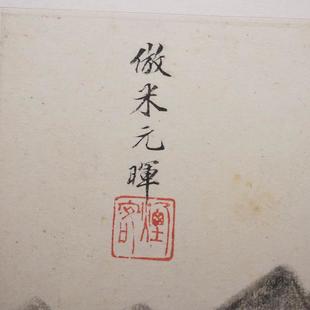 倣米元暉
煙客